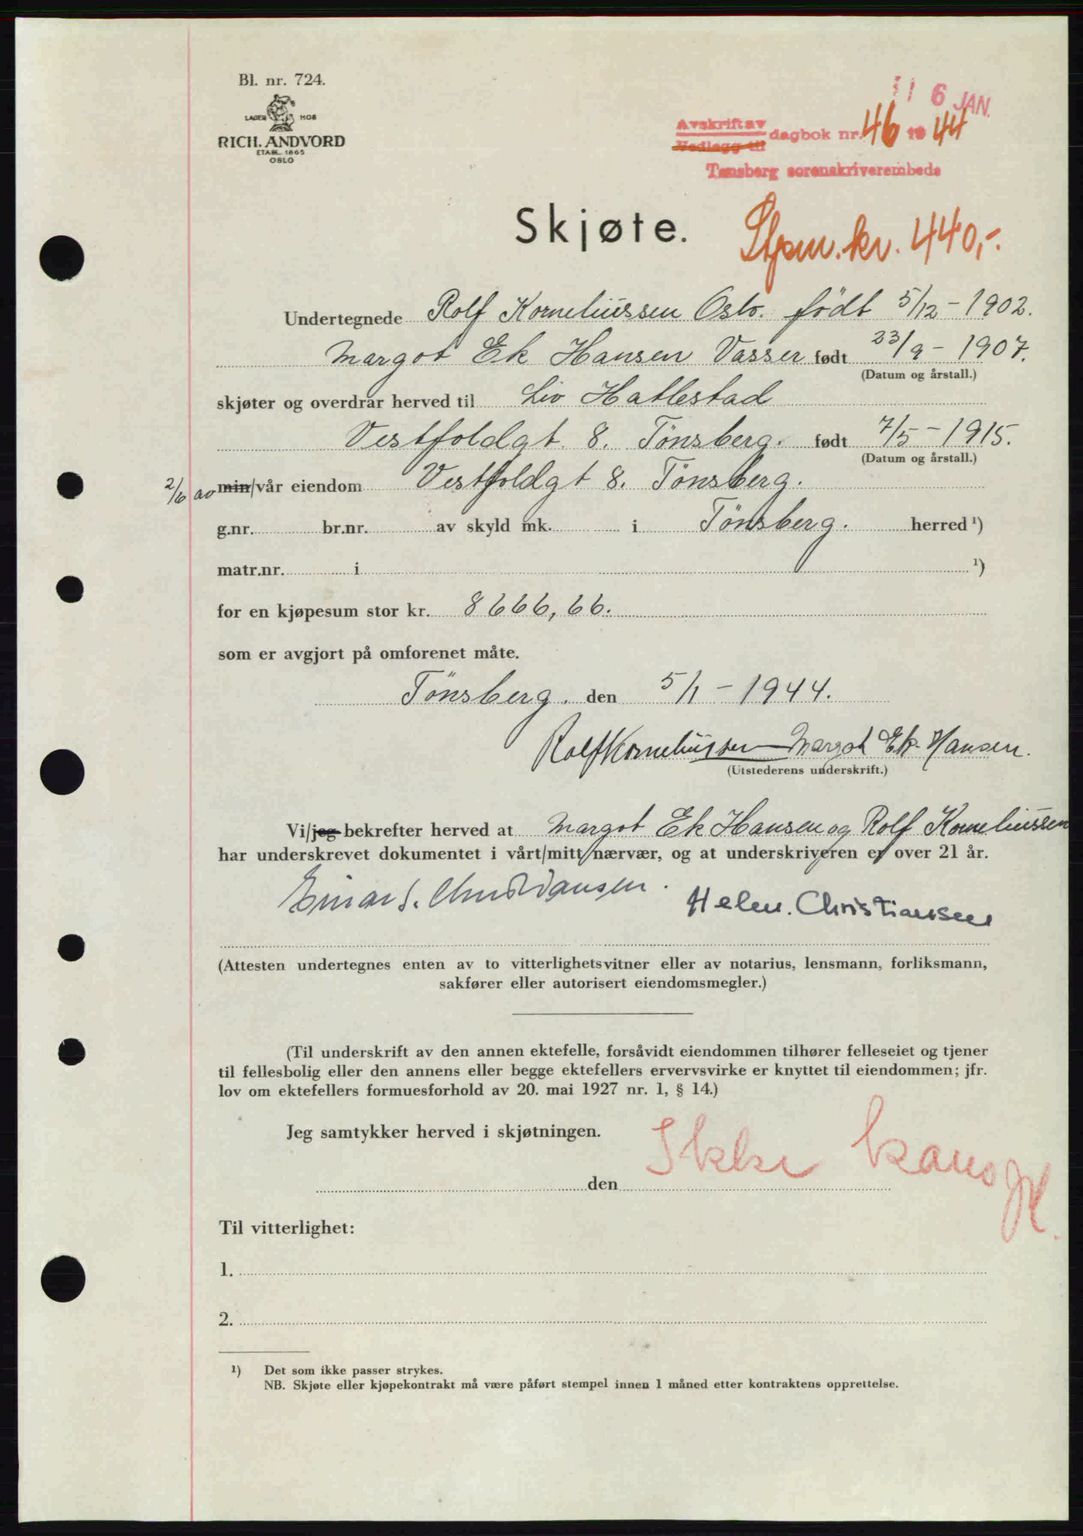 Bl. nr. 724.
LAGER HOS
RICH. ANDVORD
ETABL. 1865
OSLO
6 JAN.
Avskrift av
Vedlegg til
dagbok nr. 46 1944
Tønsberg sorenskriverembede
Skjøte.
Stpm. kr. 440,-
Undertegnede Rolf Korneliussen Oslo. født 5/12 - 1902.
Margot Ek Hansen Vasser født 23/9 - 1907.
(Datum og årstall.)
skjøter og overdrar herved til Liv Hatlestad
Vestfoldgt 8. Tönsberg. født 7/5 - 1915.
(Datum og årstall.)
2/6 av min/vår eiendom Vestfoldgt 8. Tönsberg.
g.nr. br.nr. av skyld mk. i Tönsberg. herred ¹)
matr.nr. i ¹)
for en kjøpesum stor kr. 8666,66.
som er avgjort på omforenet måte.
Tönsberg. den 5/1 - 1944.
Rolf Korneliussen Margot Ek-Hansen.
(Utstederens underskrift.)
Vi/jeg bekrefter herved at Margot Ek Hansen og Rolf Korneliussen
har underskrevet dokumentet i vårt/mitt nærvær, og at underskriveren er over 21 år.
Einar S. Christiansen. Helen. Christiansen
(Attesten undertegnes enten av to vitterlighetsvitner eller av notarius, lensmann, forliksmann,
sakfører eller autorisert eiendomsmegler.)
(Til underskrift av den annen ektefelle, forsåvidt eiendommen tilhører felleseiet og tjener
til fellesbolig eller den annens eller begge ektefellers ervervsvirke er knyttet til eiendommen; jfr.
lov om ektefellers formuesforhold av 20. mai 1927 nr. 1, § 14.)
Jeg samtykker herved i skjøtningen.
Ikke
den
Til vitterlighet:
1.
2.
¹) Det som ikke passer strykes.
NB. Skjøte eller kjøpekontrakt må være påført stempel innen 1 måned etter kontraktens opprettelse.